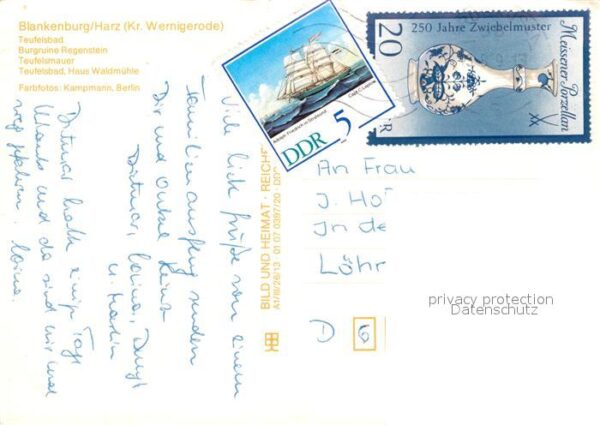 Blankenburg/Harz (Kr. Wernigerode)
Teufelsbad
Burgruine Regenstein
Teufelsmauer
Teufelsbad, Haus Waldmühle
Farbfotos: Kampmann, Berlin
Viele lieb Grüße von einem
Familienausflug senden
Dir und Onkel Heinz
Dietmar,
u. Martin
Dietmar hatte einige Tage
Urlaub und da sind wir mal
weg gefahren.
BILD UND HEIMAT · REICHE
A1/III/26/13 01 07 0397/20 · DDR
Adolph Friedrich in Stralsund
DDR 5
20
250 Jahre Zwiebelmuster
Meissener Porzellan
DDR
An Frau
J. Ho
In de
Löhr
D 6
privacy protection
Datenschutz